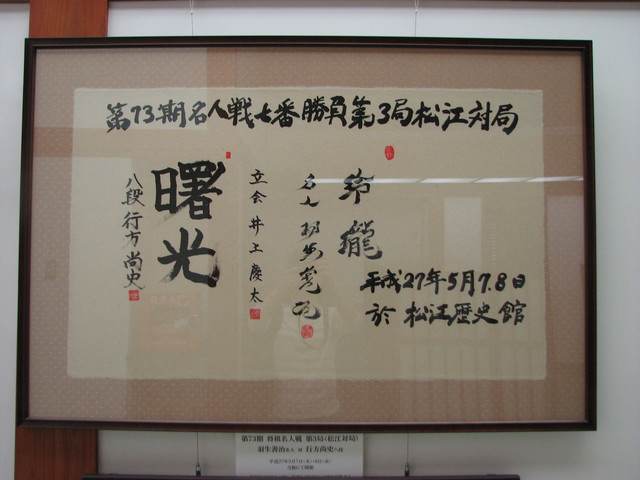 第73期名人戦七番勝負第3局松江対局
玲瓏
名人 羽生善治
立会 井上慶太
曙光
八段 行方尚史
平成27年5月7.8日
於 松江歴史館
第73期 将棋名人戦 第3局(松江対局)
羽生善治名人 対 行方尚史八段